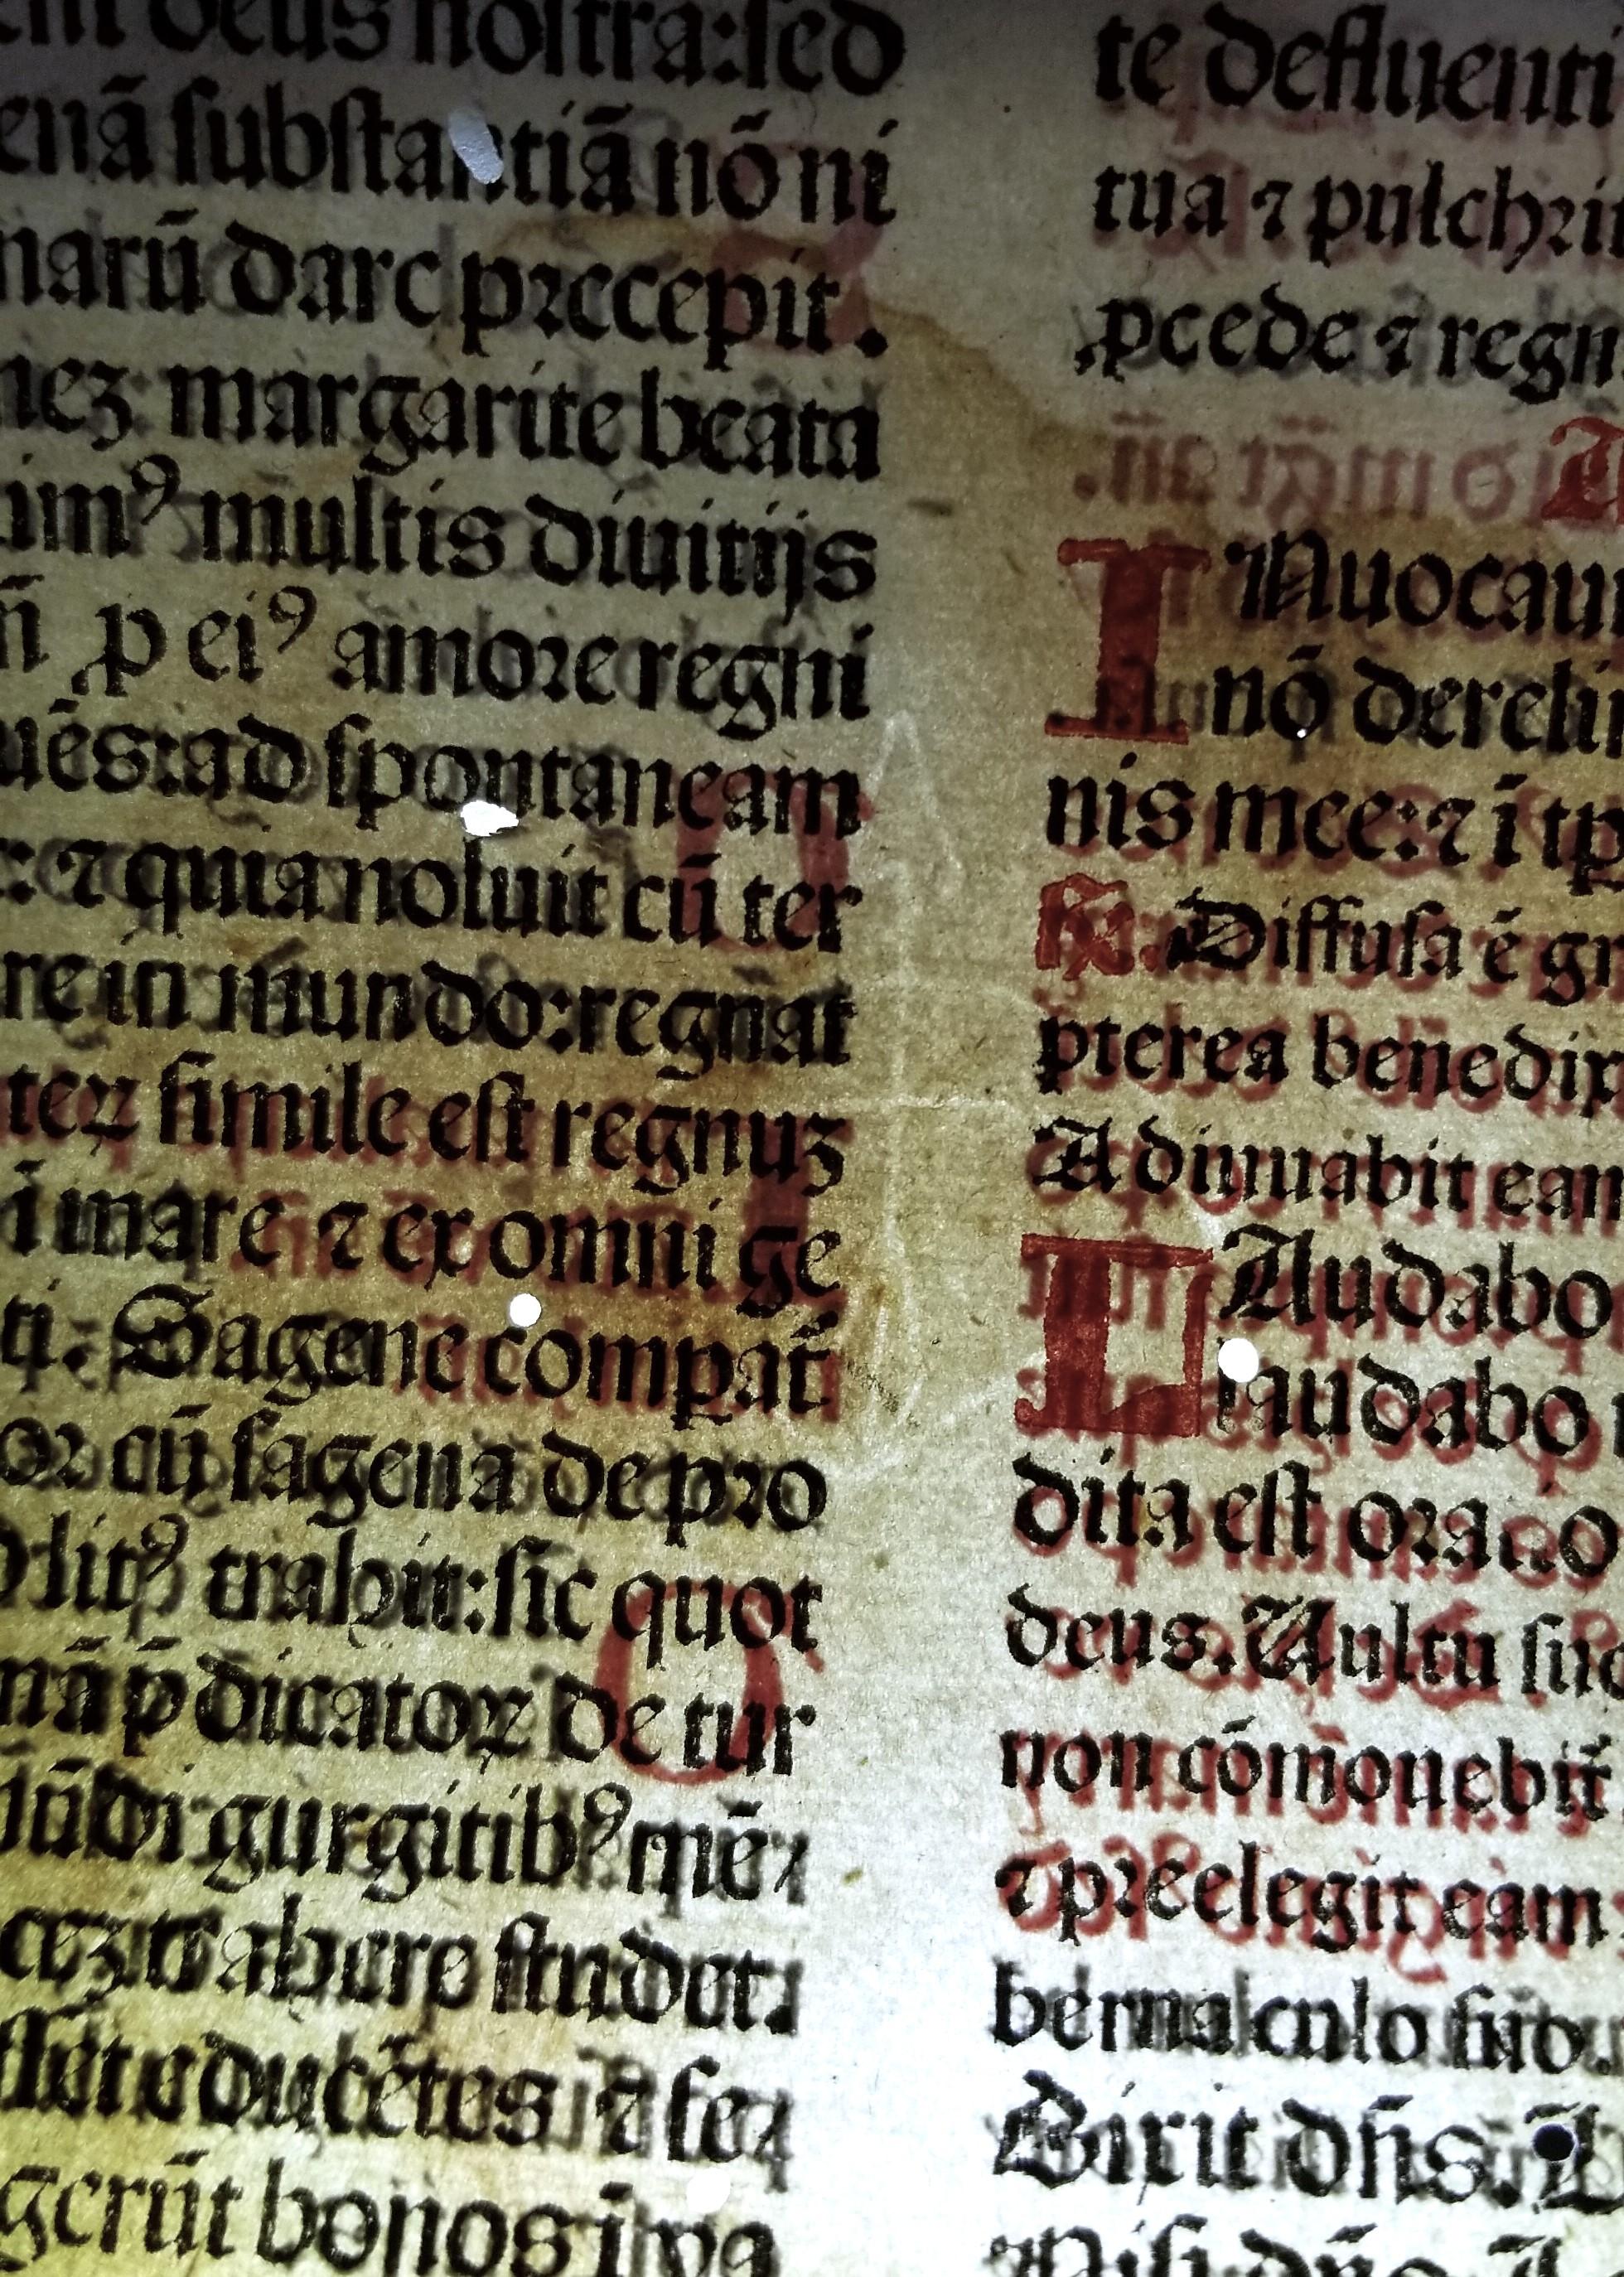 deus nostra:sed
enā substantiā nō ni
narū dare precepit.
nez margarite beata
imꝰ multis diuitijs
n̄ ꝓ eiꝰ amore regni
uēs:ad spontaneam
: ⁊ quia noluit cū ter
re in mundo:regnat
teꝝ simile est regnuz
ī mare ⁊ ex omni ge
ti. Sagene compat̄
or cū sagena de pro
litꝰ trahit:sic quot
nā p̄dicatoꝝ de tur
ūdi gurgitibꝰ mē⸗
cez trahere studet.
educētes ⁊ se⸗
gerūt bonos ī va
te defluenti
tua ⁊ pulchri
ꝓcede ⁊ regn
INuocaui
nō dereli
nis mee:⁊ ī tp
℟. Diffusa ē gr
pterea benedix
Adiuuabit eam
LAudabo
laudabo
dita est oratio
deus. Vultu suo
non cōmouebit̄
⁊ preelegit eam
bernaculo suo.
Dixit dn̄s. L
Nisi dn̄s. L